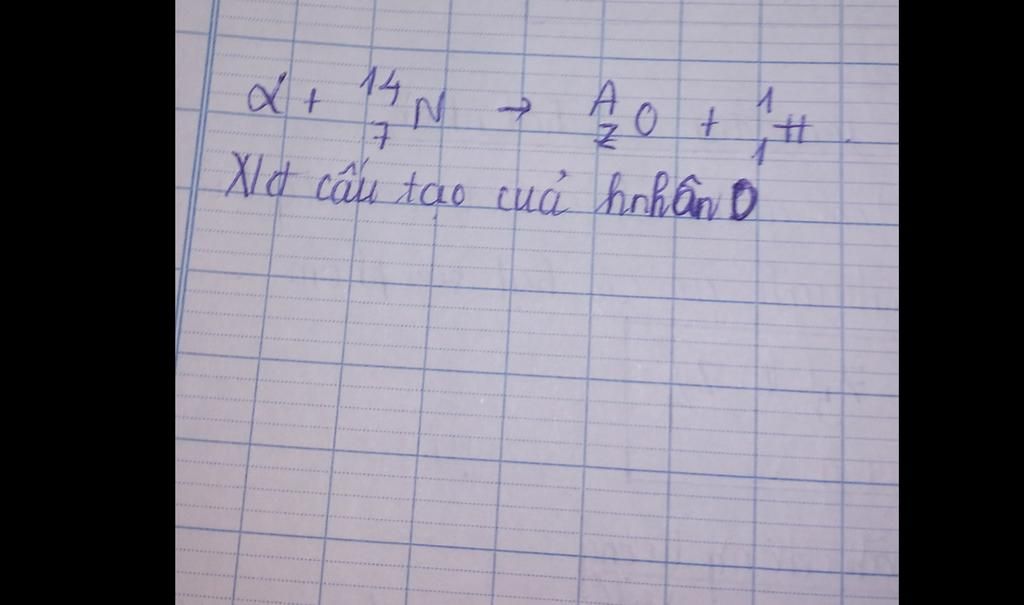 α + ¹⁴₇N → ᴬ_Z O + ¹₁H.
X/đ cấu tạo cuả hnhân O